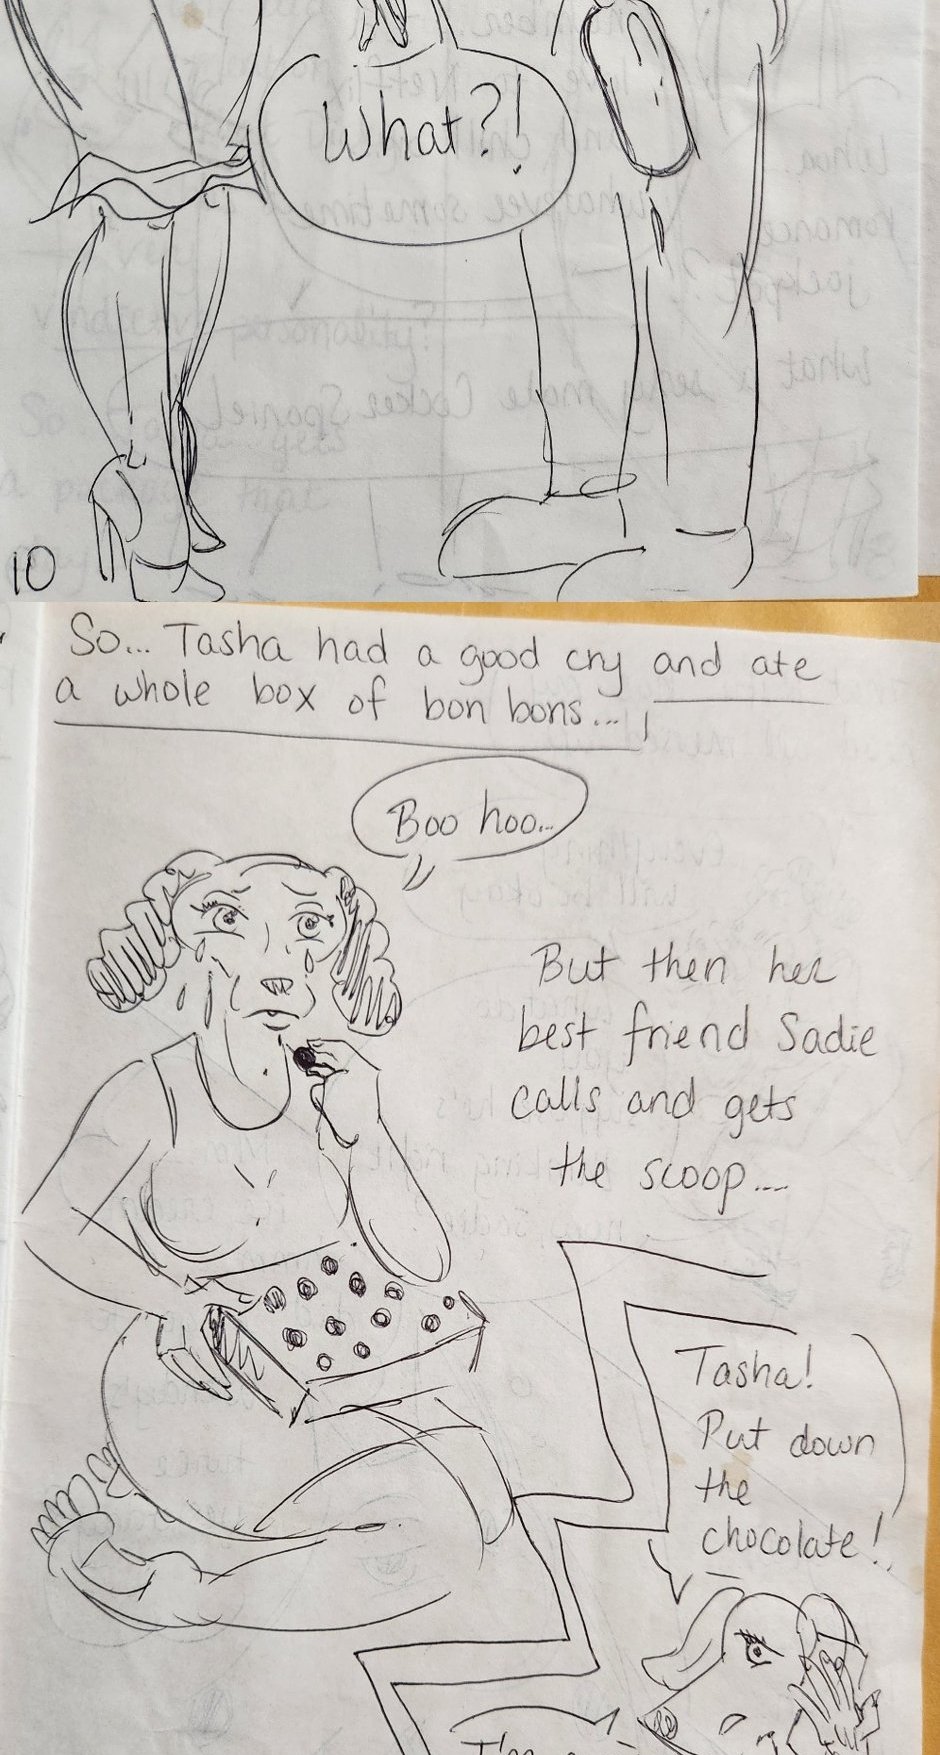 What?!
10
So... Tasha had a good cry and ate
a whole box of bon bons...!
Boo hoo...
But then her
best friend Sadie
calls and gets
the scoop...
Tasha!
Put down
the
chocolate!